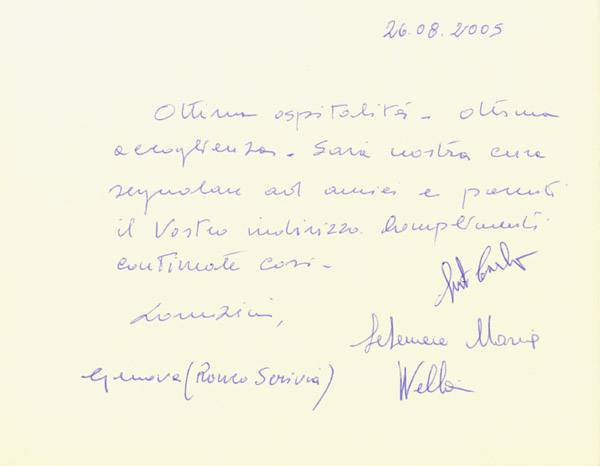 26.08.2005
Ottima ospitalità - ottima
accoglienza - Sarà nostra cura
segnalare ad amici e parenti
il Vostro indirizzo. Complimenti
continuate così -
Carlo
Maria
Genova (Ronco Scrivia)